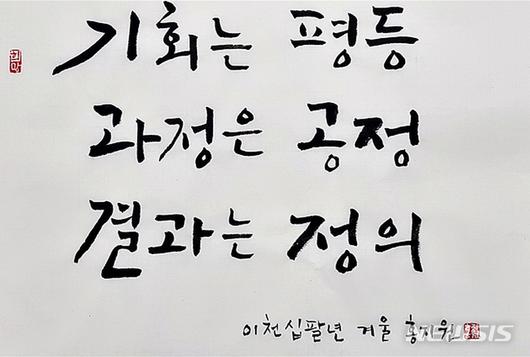 기회는 평등
과정은 공정
결과는 정의
이천십팔년 겨울 홍지원
NEWSIS